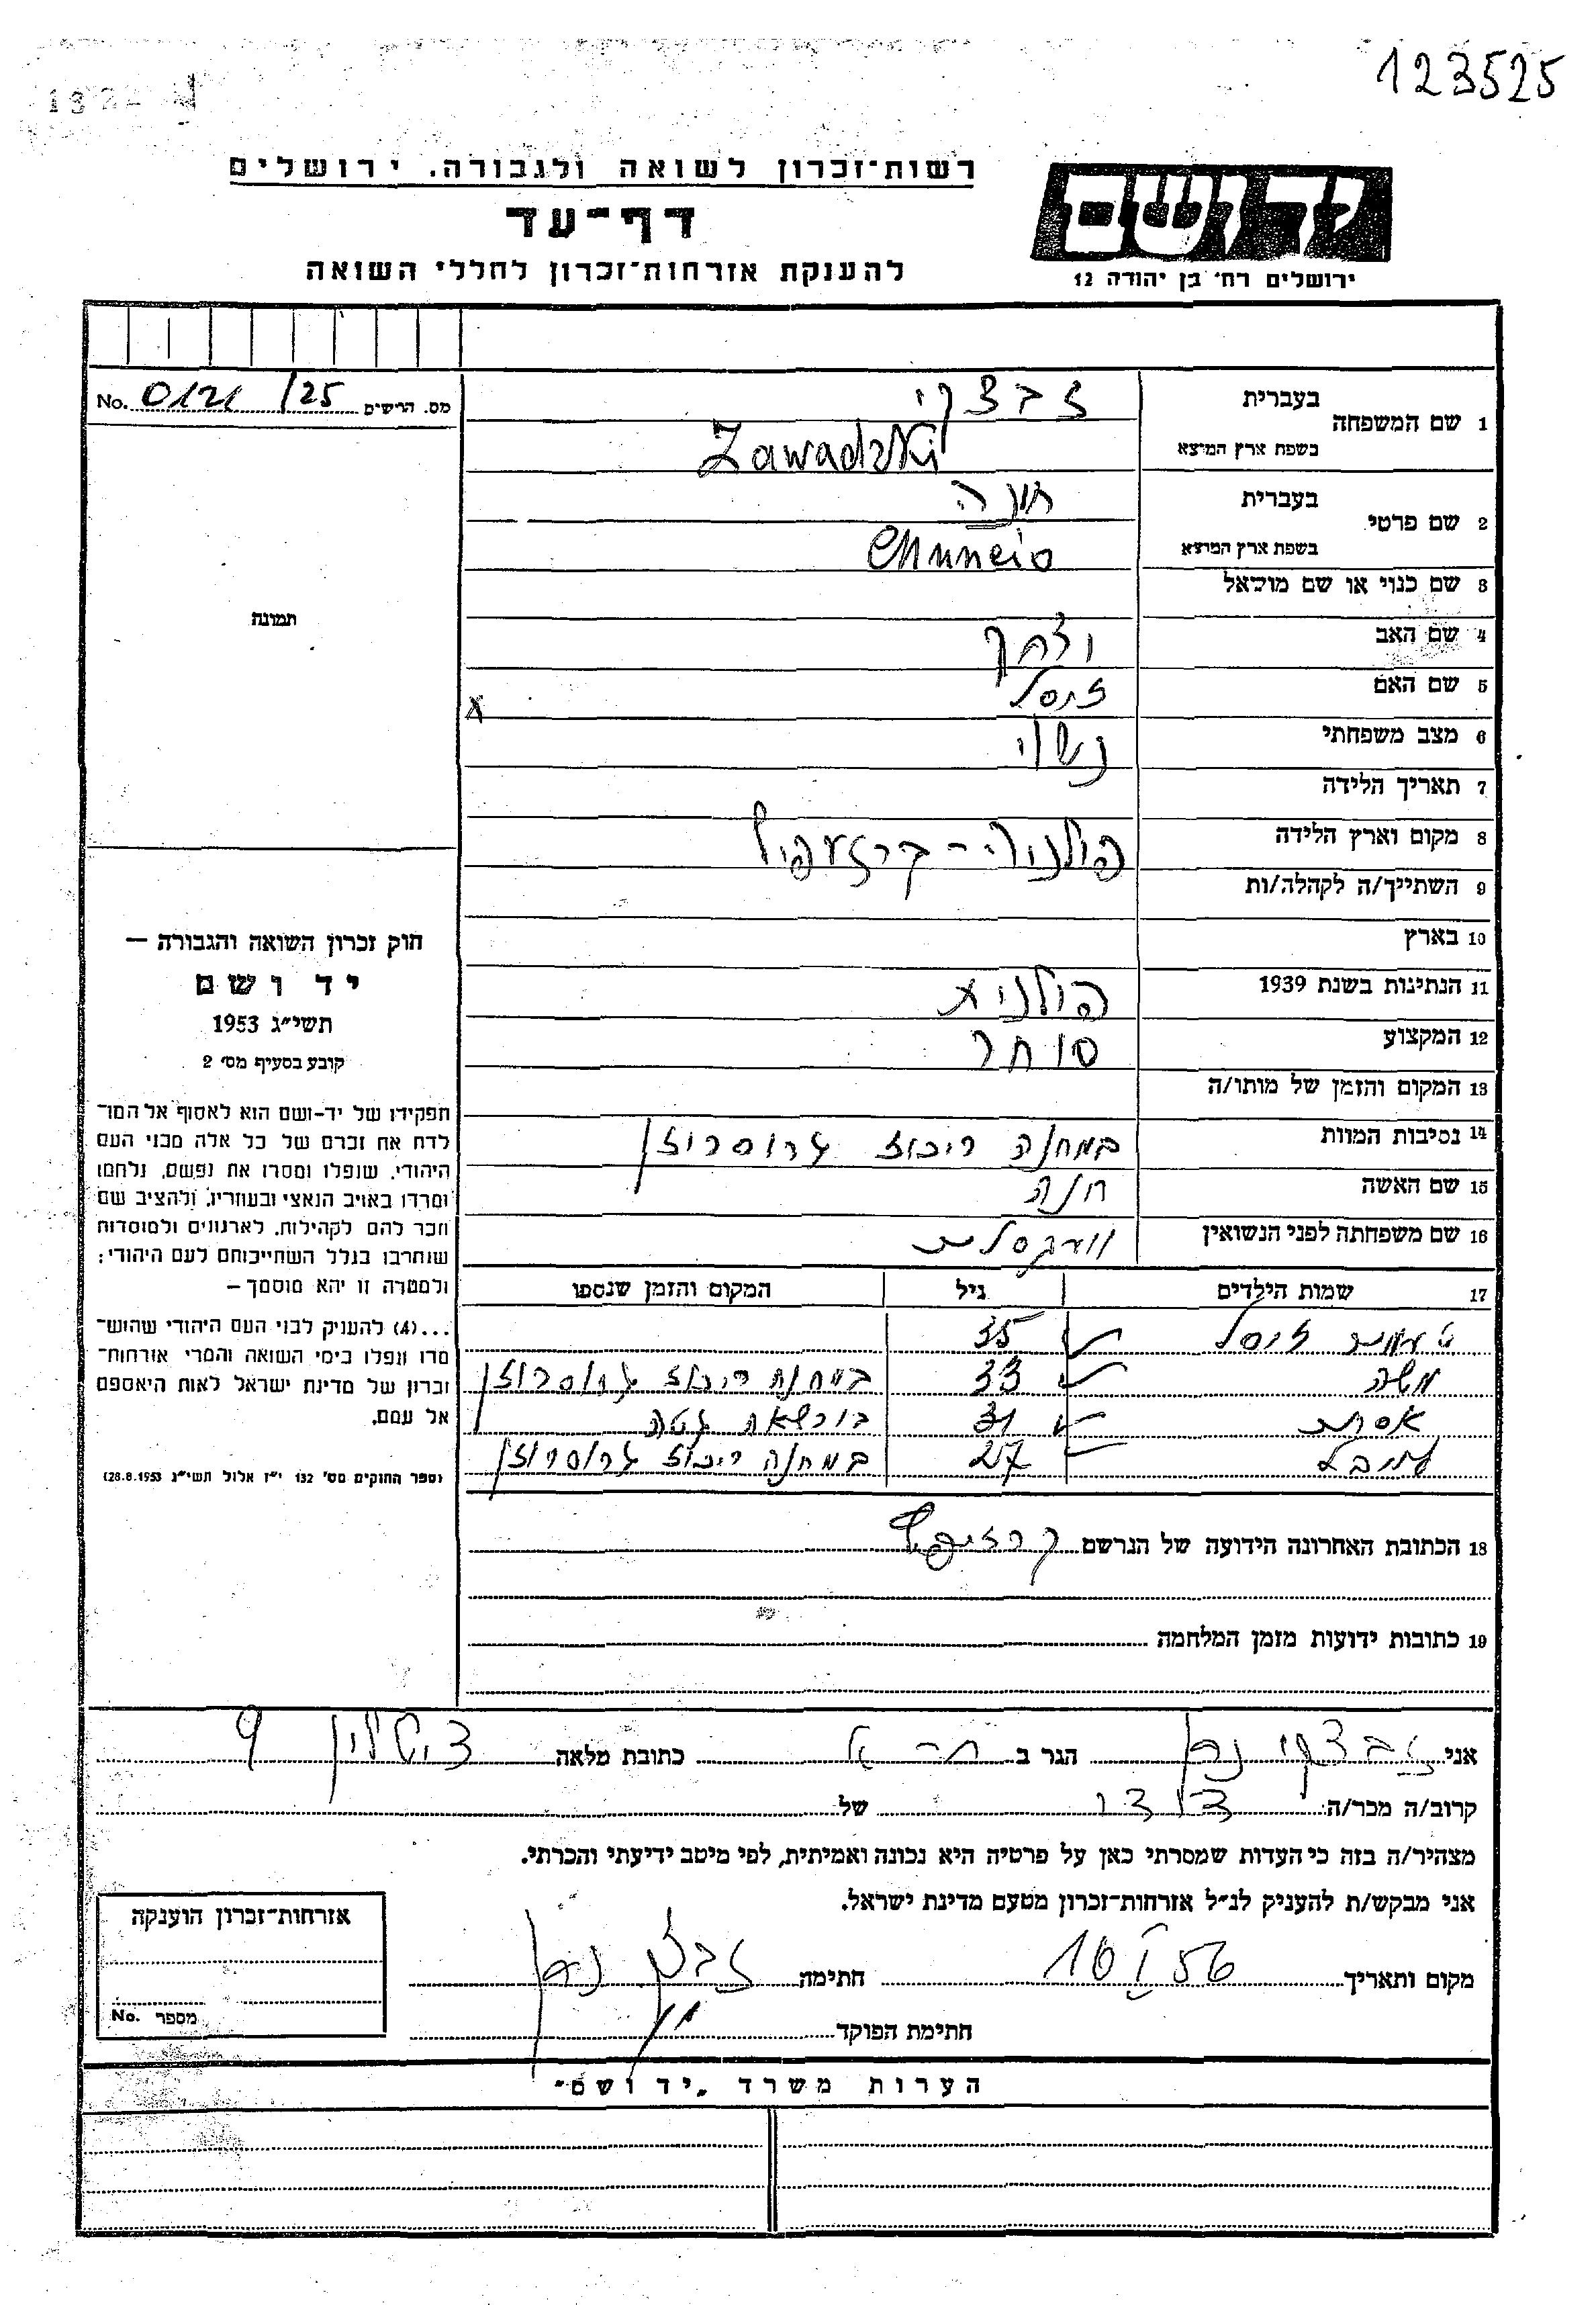 123525
רשות-זכרון לשואה ולגבורה. ירושלים
דף-עד
להענקת אזרחות-זכרון לחללי השואה
יד ושם
ירושלים רח' בן יהודה 12
No. 0121/25 מס. הרישום
1 שם המשפחה
בעברית זבצקי
בשפת ארץ המוצא Zawadzki
2 שם פרטי
בעברית חונה
בשפת ארץ המוצא
3 שם כנוי או שם מושאל
4 שם האב יצחק
5 שם האם זיסל
6 מצב משפחתי נשוי
7 תאריך הלידה
8 מקום וארץ הלידה פולניה -
9 השתייך/ה לקהלה/ות
10 בארץ
11 הנתינות בשנת 1939 פולנית
12 המקצוע סוחר
13 המקום והזמן של מותו/ה
14 נסיבות המוות במחנה ריכוז גרוסרוזן
15 שם האשה חנה
16 שם משפחתה לפני הנשואין
17 שמות הילדים גיל המקום והזמן שנספו
זיסל 35
משה 33 במחנה ריכוז גרוסרוזן
אסתר 31 בורשאה גטה
לייבל 27 במחנה ריכוז גרוסרוזן
18 הכתובת האחרונה הידועה של הנרשם
19 כתובות ידועות מזמן המלחמה
תמונה
חוק זכרון השואה והגבורה —
יד ושם
תשי"ג 1953
קובע בסעיף מס' 2
תפקידו של יד-ושם הוא לאסוף אל המו-
לדת את זכרם של כל אלה מבני העם
היהודי, שנפלו ומסרו את נפשם, נלחמו
ומרדו באויב הנאצי ובעוזריו, ולהציב שם
וזכר להם לקהילות, לארגונים ולמוסדות
שנחרבו בגלל השתייכותם לעם היהודי:
ולמטרה זו יהא מוסמך —
...(4) להעניק לבני העם היהודי שהוש-
מדו ונפלו בימי השואה והמרי אזרחות-
זכרון של מדינת ישראל לאות היאספם
אל עמם.
(ספר החוקים מס' 132 י"ז אלול תשי"ג 28.8.1953)
אני זבצקי נתן הגר ב ת-א כתובת מלאה 9
קרוב/ה מכר/ה של
מצהיר/ה בזה כי העדות שמסרתי כאן על פרטיה היא נכונה ואמיתית, לפי מיטב ידיעתי והכרתי.
אני מבקש/ת להעניק לנ"ל אזרחות-זכרון מטעם מדינת ישראל.
מקום ותאריך 10 I 56 חתימה
חתימת הפוקד
אזרחות-זכרון הוענקה
מספר No.
הערות משרד "יד ושם"